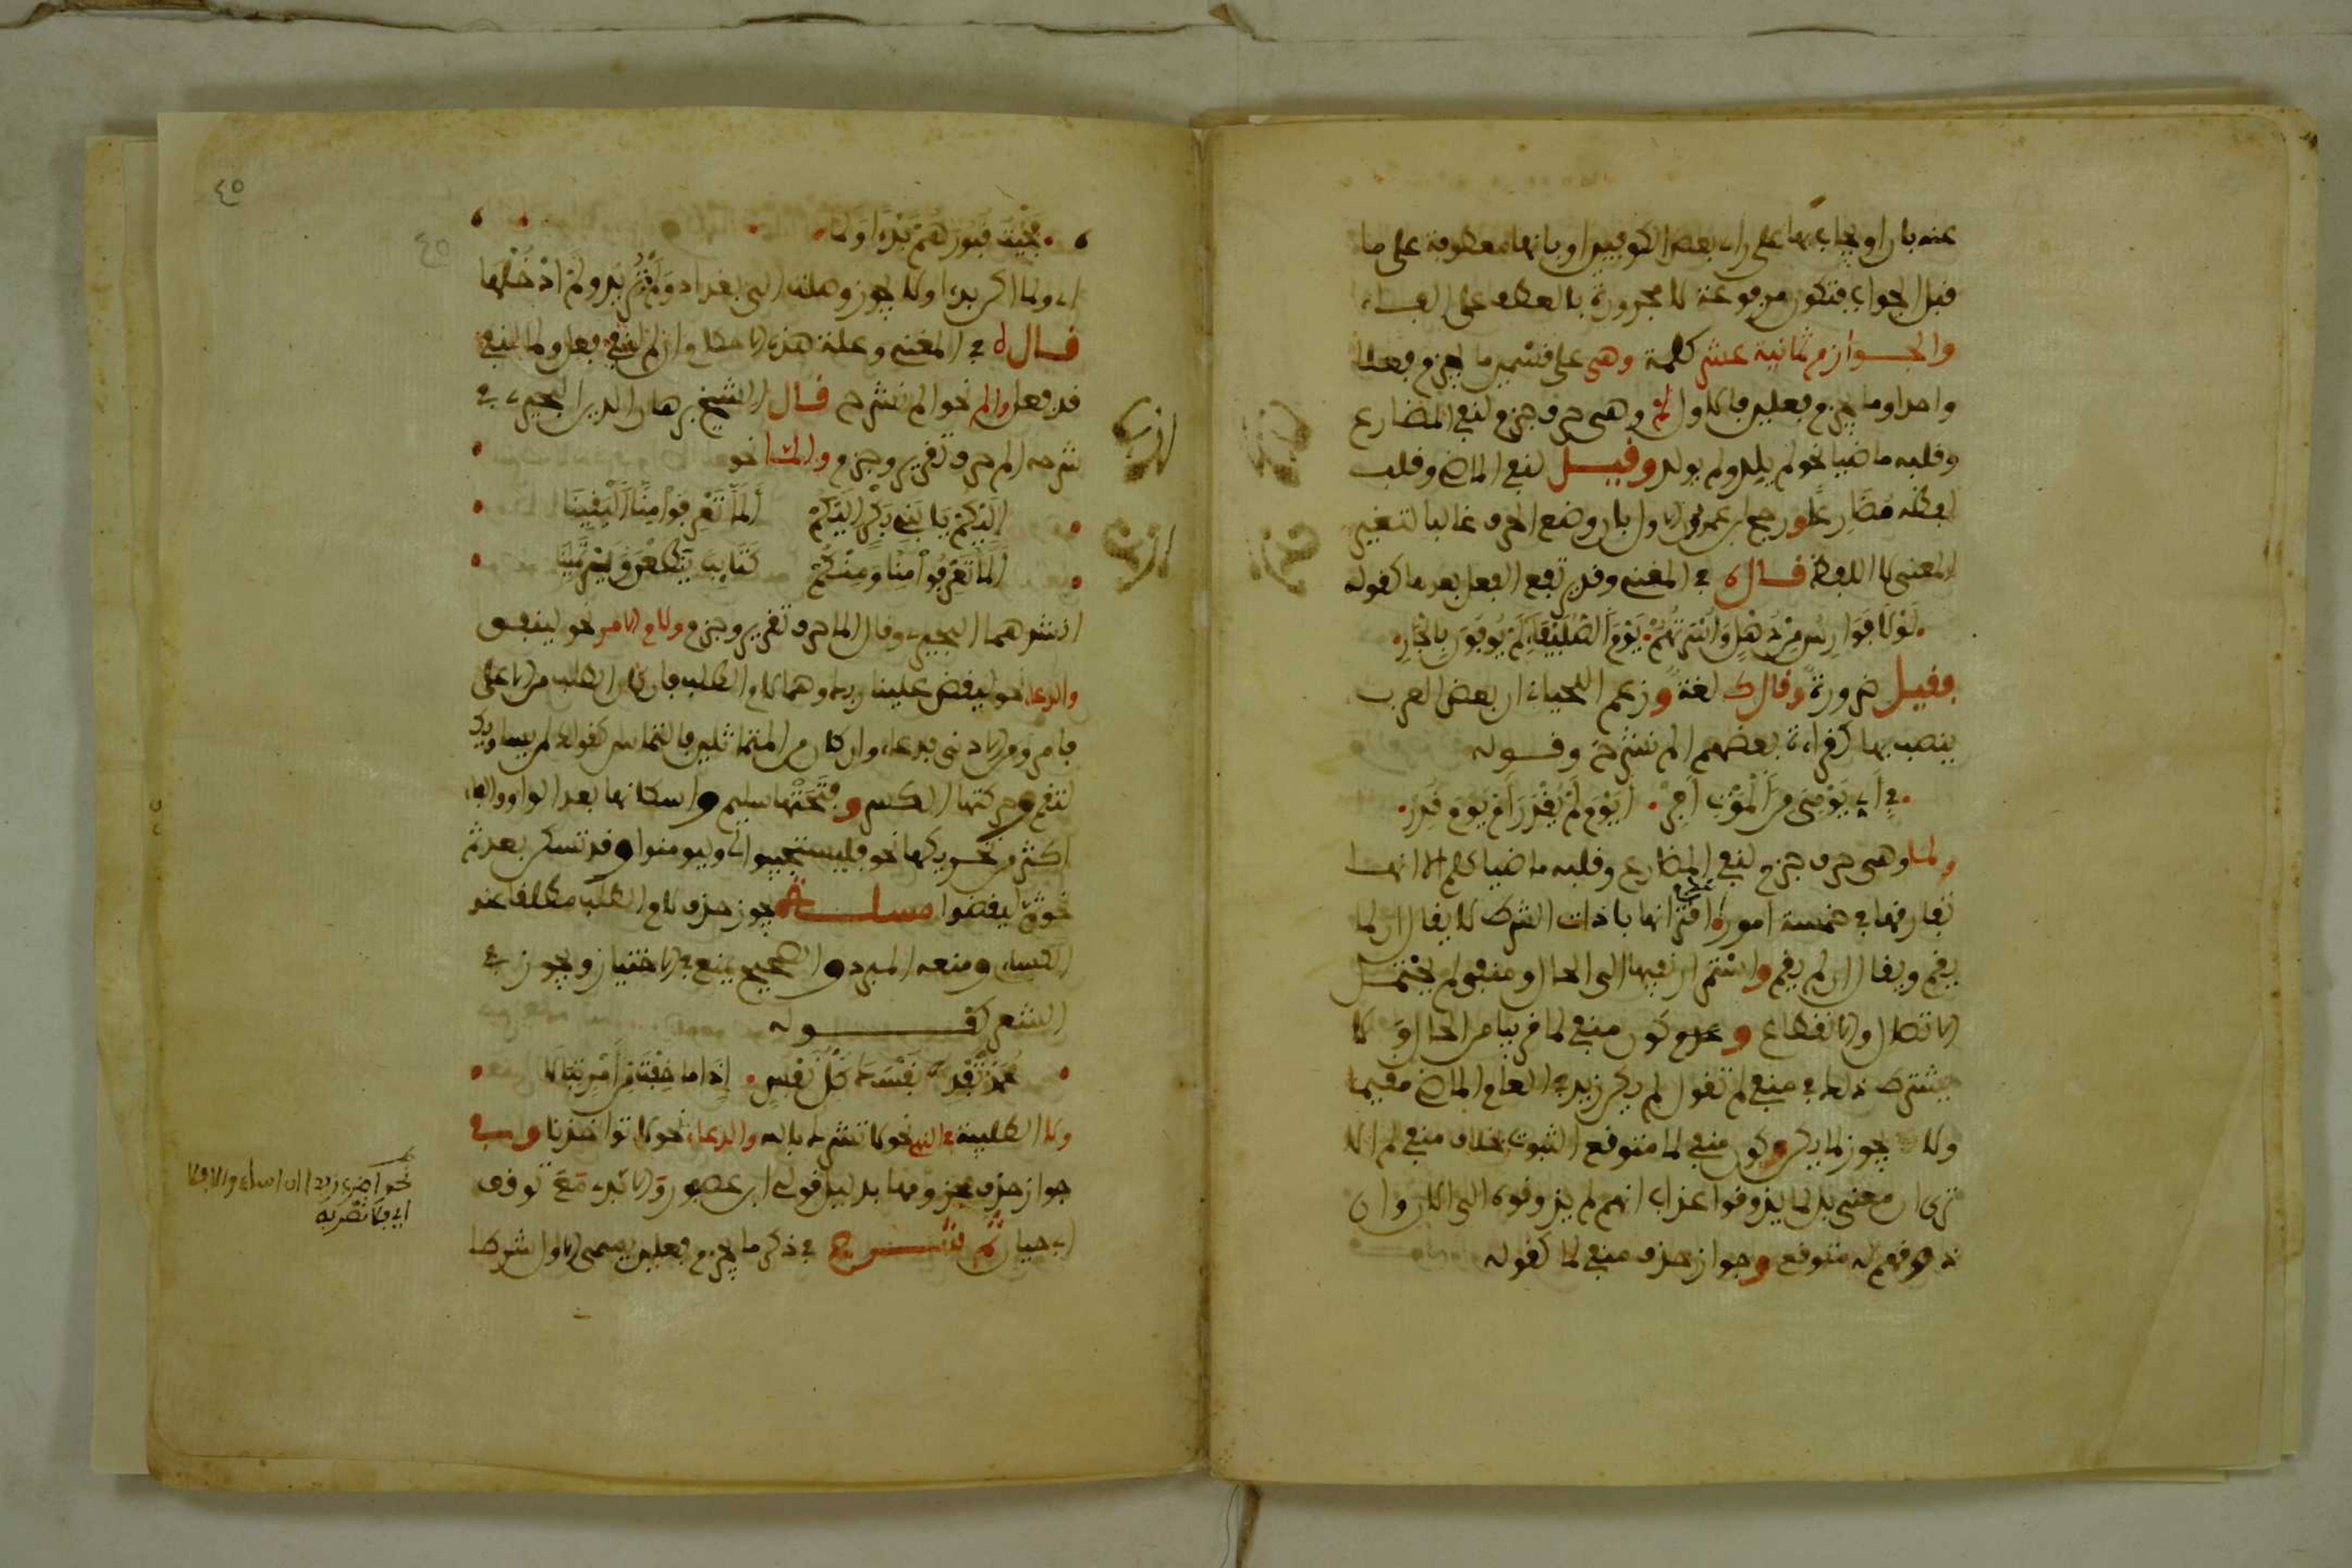 عنه بان او يجاب بها على راي بعض الكوفيين او بانها معطوفة على ما
قبل الجواب فتكون مرفوعة لا مجرورة بالعطف على الفساء
والجوازم ثمانية عشر كلمة وهي على قسمين ما يجزم فعلا
واحدا وما يجزم فعلين فالاول لم وهي حرف جزم لنفي المضارع
وقلبه ماضيا نحو لم يلد ولم يولد وقيل لنفي الماضي وقلب
لفظه مضارعا ورجح ابن عصفور الاول بان وضع الحرف غالبا لتغيير
المعنى لا اللفظ قال في المغني وقد يرتفع الفعل بعدها كقوله
لَوْلَا فَوَارِسُ مِنْ ذُهْلٍ وَأُسْرَتُهُمْ يَوْمَ الصُّلَيْفَاءِ لَمْ يُوفُونَ بِالْجَارِ
فقيل ضرورة وقال ك لغة وزعم اللحياني ان بعض العرب
ينصب بها كقراءة بعضهم الم نشرح وقوله
فِي أَيِّ يَوْمَيَّ مِنَ الْمَوْتِ أَفِرّْ أَيَوْمَ لَمْ يُقْدَرَ أَمْ يَوْمَ قُدِرْ
ولما وهي حرف جزم لنفي المضارع وقلبه ماضيا كلم الا انها
تفارقها في خمسة امور عدم اقترانها باذات الشرط لا يقال ان لما
يقم ويقال ان لم يقم واستمرار نفيها الى الحال ومنفي لم يحتمل
الاتصال والانقطاع وعدم كون منفي لما قريبا من الحال ولا
يشترط ذلك في منفي لم تقول لم يكن زيد في العام الماضي مقيما
ولا يجوز لما يكن وكون منفي لما متوقع الثبوت بخلاف منفي لم الا
ترى ان معنى بل لما يذوقوا عذاب انهم لم يذوقوه الى الان وان
ذوقهم له متوقع وجواز حذف منفي لما كقوله
٤٥
فَجِئْتُ قُبُورَهُمْ بَدْءًا وَلَمَّا
اي ولما اكن بدءا ولا يجوز وصلت الى بغداد ولم تريد ولم ادخلها
قال في المغني وعلة هذه الاحكام ان لم لنفي فعل ولما لنفي
قد فعل والم نحو الم نشرح قال الشيخ برهان الدين البجيري في
شرحه الم حرف تقرير وجزم والما نحو
إِلَيْكُمْ يَا بَنِي بَكْرٍ إِلَيْكُمْ أَلَمَّا تَعْرِفُوا مِنَّا الْيَقِينَا
أَلَمَّا تَعْرِفُوا مِنَّا وَمِنْكُمْ كَتَائِبَ يَطَّعِنَّ وَيَرْتَمِينَا
انشدهما البجيري وقال الما حرف تقرير وجزم ولام الامر نحو لينفق
والدعاء نحو ليقض علينا ربك وهما لام الطلب فان كان الطلب من الاعلى
فامر ومن الادنى فدعاء وان كان من المتماثلين فالتماس كقولك لمن يساويك
لتقم وحركتها الكسر وفتحتها سليم واسكانها بعد الواو والفاء
اكثر من تحريكها نحو فليستجيبوا لي وليومنوا وقد تسكن بعد ثم
نحو ثم ليقضوا مسالة يجوز حذف لام الطلب مطلقا عند
الكساءي ومنعه المبرد والصحيح يمنع في الاختيار ويجوز في
الشعر كقوله
مُحَمَّدُ تَفْدِ نَفْسَكَ كُلُّ نَفْسٍ إِذَا مَا خِفْتَ مِنْ أَمْرٍ تَبَالَا
ولا الطلبية في النهي نحو لا تشرك بالله والدعاء نحو لا تواخذنا وفي
جواز حذف مجزومها بدليل قولي ابن عصفور والابدي مع توقف
ابي حيان ثم شرع في ذكر ما يجزم فعلين يسمى الاول شرطا
نحو اضرب زيدا ان اساء والا فلا
اي فلا تضربه